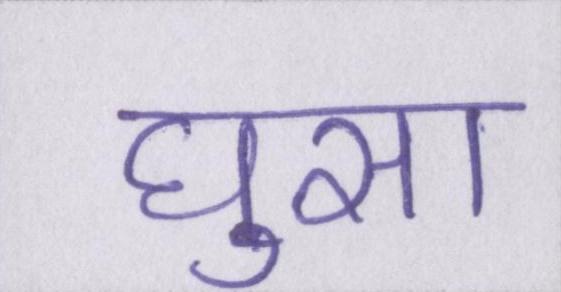 घुसा